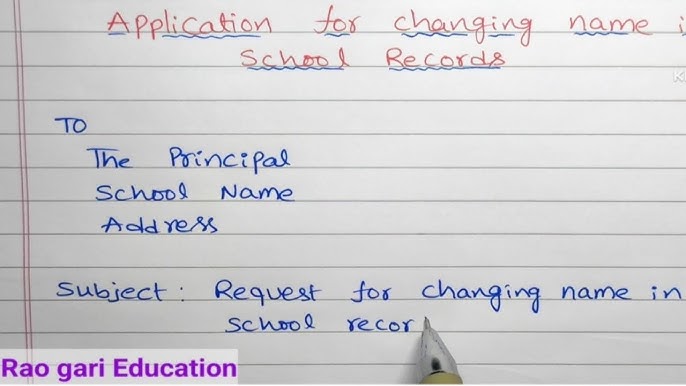 Application for changing name i
School Records
TO
The Principal
School Name
Address
Subject : Request for changing name in
school recor
Rao gari Education